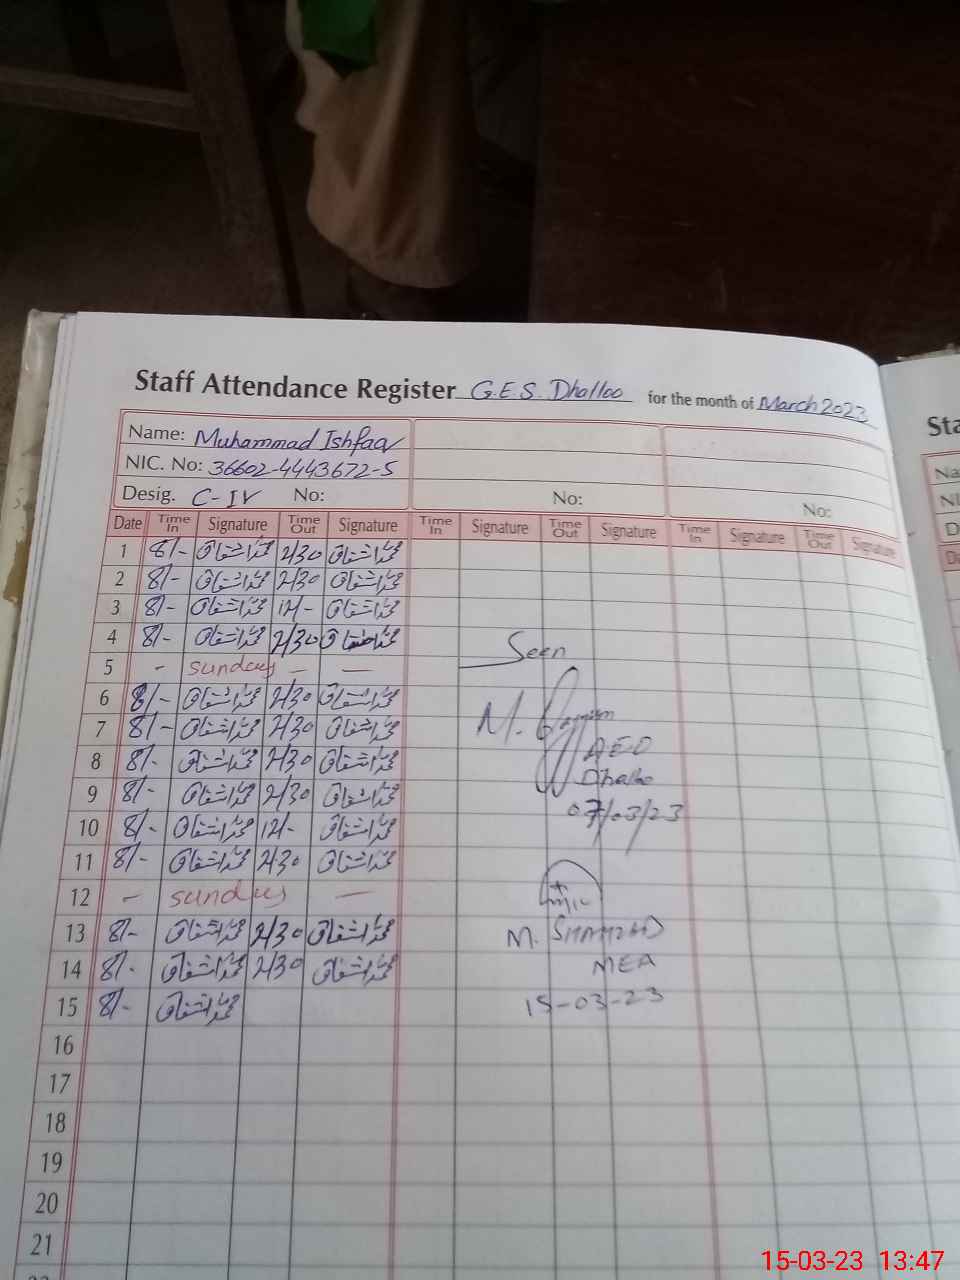 Staff Attendance Register G.E.S. Dhalloo for the month of March 2023
Name: Muhammad Ishfaq
NIC. No: 36602-4443672-5
Desig. C-IV No: No: No:
Date Time In Signature Time Out Signature Time In Signature Time Out Signature Time In Signature Time Out Signature
1 8/- محمد اشفاق 2/30 محمد اشفاق
2 8/- محمد اشفاق 2/30 محمد اشفاق
3 8/- محمد اشفاق 12/- محمد اشفاق
4 8/- محمد اشفاق 2/30 محمد اشفاق
5 - sunday - -
6 8/- محمد اشفاق 2/30 محمد اشفاق
7 8/- محمد اشفاق 2/30 محمد اشفاق
8 8/- محمد اشفاق 2/30 محمد اشفاق
9 8/- محمد اشفاق 2/30 محمد اشفاق
10 8/- محمد اشفاق 12/- محمد اشفاق
11 8/- محمد اشفاق 2/30 محمد اشفاق
12 - sunday -
13 8/- محمد اشفاق 2/30 محمد اشفاق
14 8/- محمد اشفاق 2/30 محمد اشفاق
15 8/- محمد اشفاق
16
17
18
19
20
21
Seen
M.
AEO
Dhalloo
07/03/23
M. SHAHZAD
MEA
15-03-23
Sta
Na
NI
D
Da
15-03-23 13:47